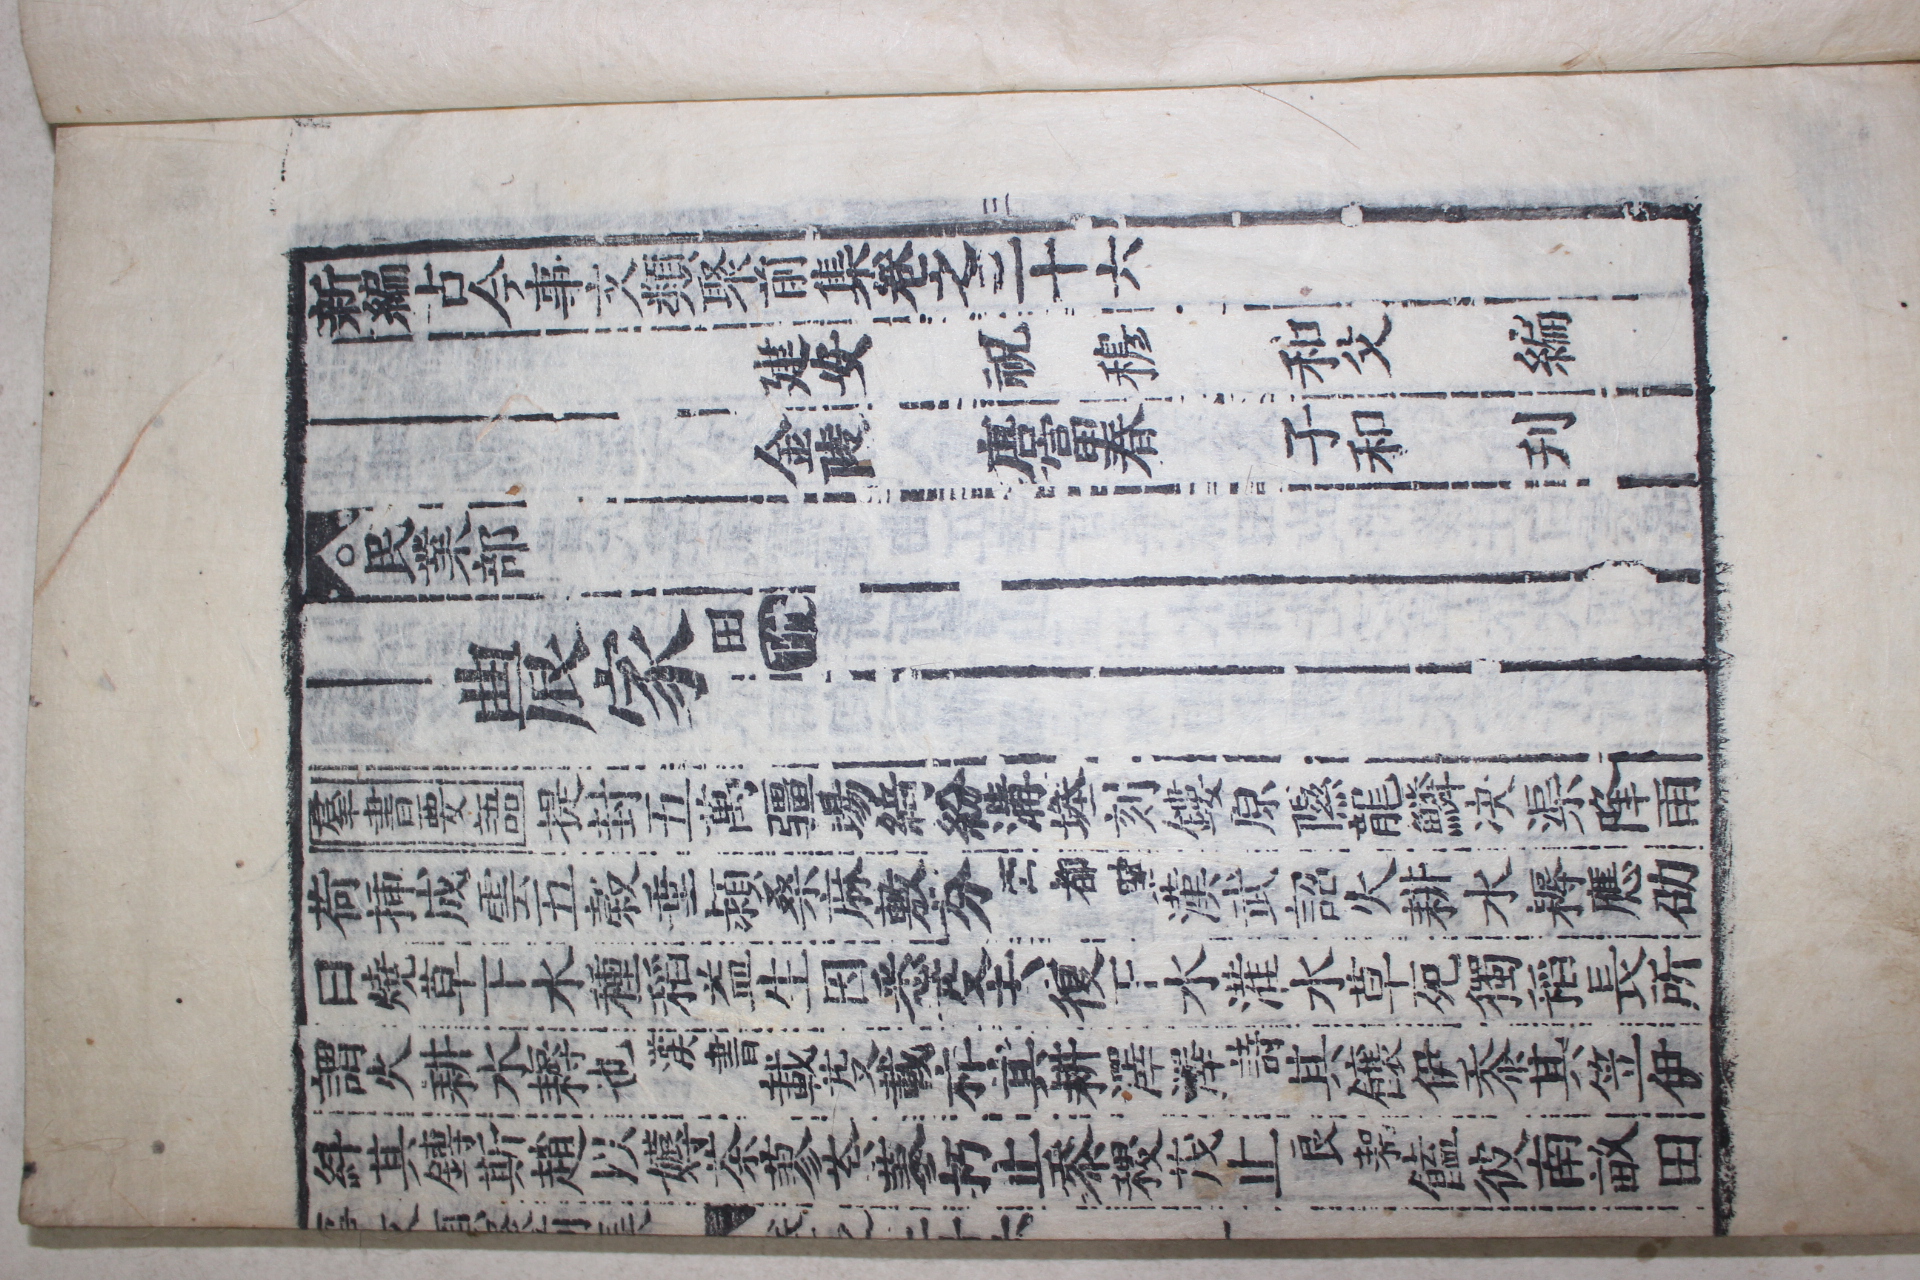 新編古今事文類聚前集卷之三十六
建安 祝 穆 和父 編
金陵 唐富春 子和 刋
○民業部
農家 田附
羣書要語 提封五萬疆場綺紛溝塍刻鏤原隰龍鱗決渠降雨
荷揷成雲五穀垂穎桑麻敷芬 西都賦 漢武詔火耕水耨應劭
曰燒草下水種稻益生因悉芟去復下水灌水草死獨稻長所
謂火耕水耨也 漢書 載芟載柞其耕澤澤 詩 其饟伊黍其笠伊
糾其鎛斯趙以薅荼蓼荼蓼朽止黍稷茂止 良耜 饁彼南畝田
卷之三十六
一